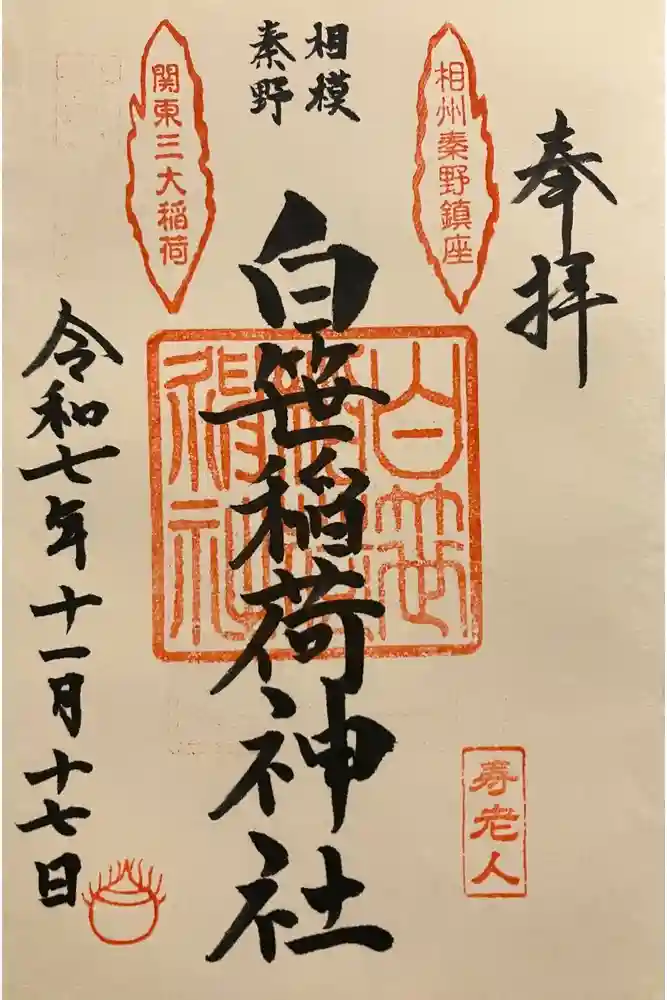 奉拝
相州秦野鎮座
相模
秦野
関東三大稲荷
白笹稲荷神社
寿老人
令和七年十一月十七日